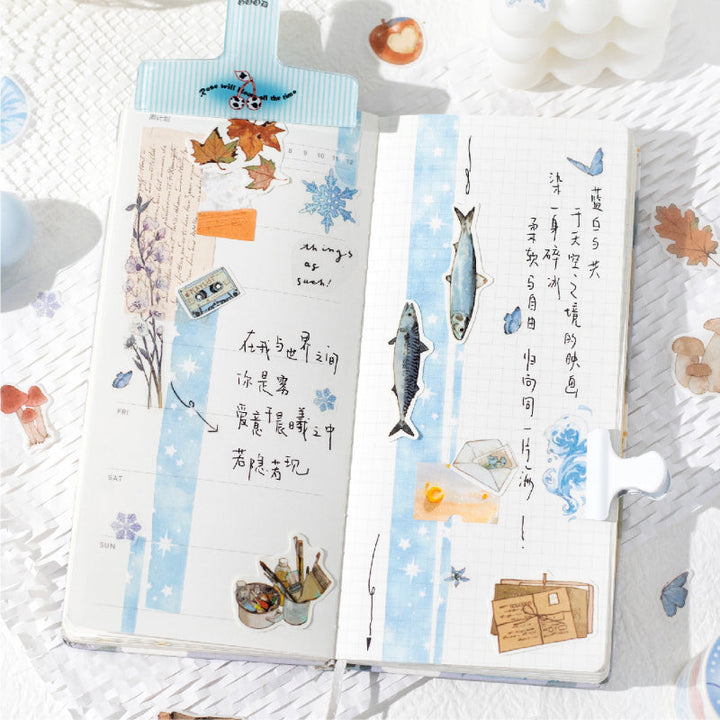 周计划
8 9 10 11 12
things
as
such!
在我与世界之间
你是雾
爱意于晨曦之中
若隐若现
FRI
SAT
SUN
蓝 与共
于天空之境的映画
染一身碎冰
柔软与自由 归向同一片海 — !
Rose will all the time